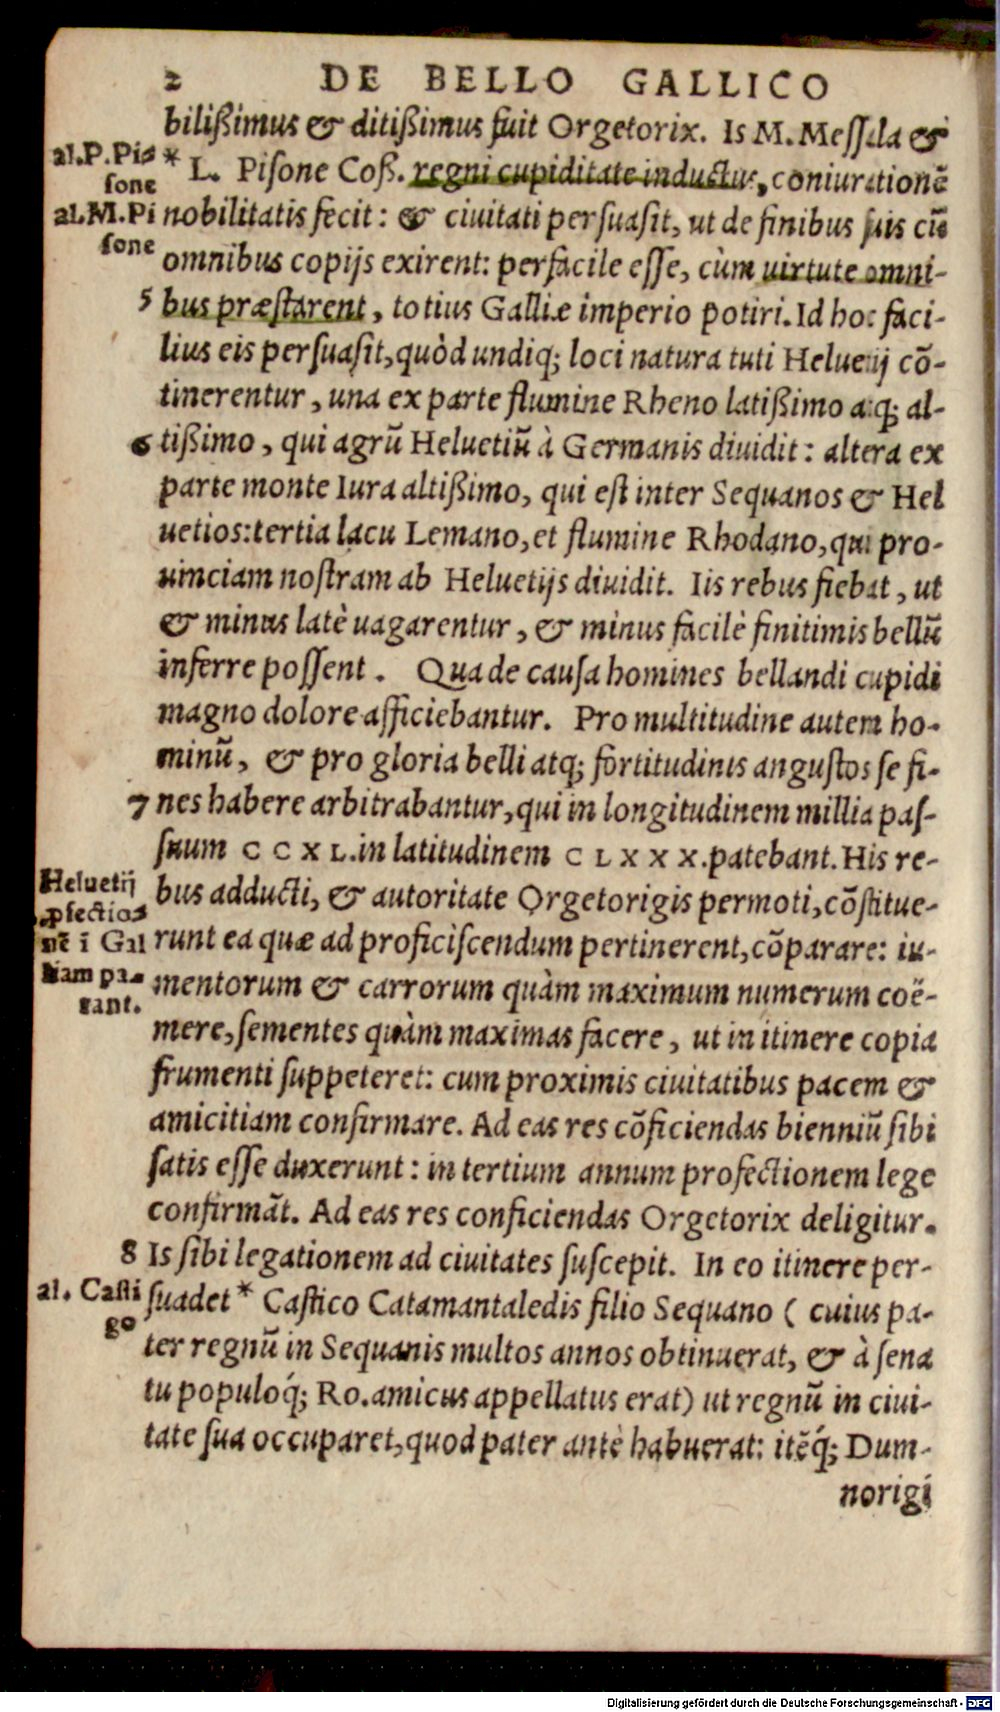 2 DE BELLO GALLICO
biliſſimus & ditiſſimus fuit Orgetorix. Is M. Meſſala &
al. P. Piſone
al. M. Piſone
* L. Piſone Coſſ. regni cupiditate inductus, coniurationẽ
nobilitatis fecit: & ciuitati perſuaſit, ut de finibus ſuis cũ
omnibus copijs exirent: perfacile eſſe, cùm uirtute omni-
5 bus præſtarent, totius Galliæ imperio potiri. Id hoc faci-
lius eis perſuaſit, quòd undiq; loci natura tuti Heluetij cõ-
tinerentur, una ex parte flumine Rheno latiſſimo atq; al-
6 tiſſimo, qui agrũ Heluetiũ à Germanis diuidit: altera ex
parte monte Iura altiſſimo, qui eſt inter Sequanos & Hel
uetios: tertia lacu Lemano, et flumine Rhodano, qui pro-
uinciam noſtram ab Heluetijs diuidit. Iis rebus fiebat, ut
& minus latè uagarentur, & minus facilè finitimis bellũ
inferre poſſent. Qua de cauſa homines bellandi cupidi
magno dolore afficiebantur. Pro multitudine autem ho-
minũ, & pro gloria belli atq; fortitudinis anguſtos ſe fi-
7 nes habere arbitrabantur, qui in longitudinem millia paſ-
ſuum CCXL. in latitudinem CLXXX. patebant. His re-
Heluetij
ꝓfectio-
nẽ ĩ Gal
liam pa-
rant.
bus adducti, & autoritate Orgetorigis permoti, cõſtitue-
runt ea quæ ad proficiſcendum pertinerent, cõparare: iu-
mentorum & carrorum quàm maximum numerum coë-
mere, ſementes quàm maximas facere, ut in itinere copia
frumenti ſuppeteret: cum proximis ciuitatibus pacem &
amicitiam confirmare. Ad eas res cõficiendas bienniũ ſibi
ſatis eſſe duxerunt: in tertium annum profectionem lege
confirmãt. Ad eas res conficiendas Orgetorix deligitur.
8 Is ſibi legationem ad ciuitates ſuſcepit. In eo itinere per-
al. Caſti
go
ſuadet * Caſtico Catamantaledis filio Sequano ( cuius pa-
ter regnũ in Sequanis multos annos obtinuerat, & à ſena
tu populoq́; Ro. amicus appellatus erat) ut regnũ in ciui-
tate ſua occuparet, quod pater antè habuerat: itẽq́; Dum-
norigi
Digitalisierung gefördert durch die Deutsche Forschungsgemeinschaft - DFG